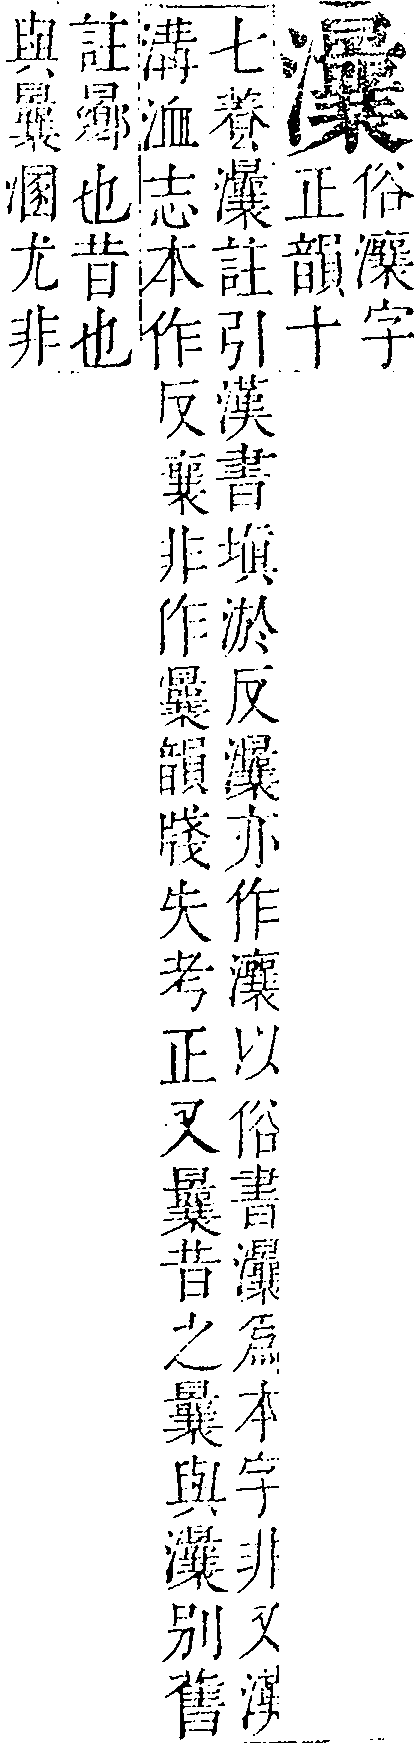 灢俗瀼字
正韻十
七養灢註引漢書塡淤反灢亦作瀼以俗書灢爲本字非又漢
溝洫志本作反襄非作曩韻牋失考正又曩昔之曩與灢別舊
註曏也昔也
與曩溷尤非